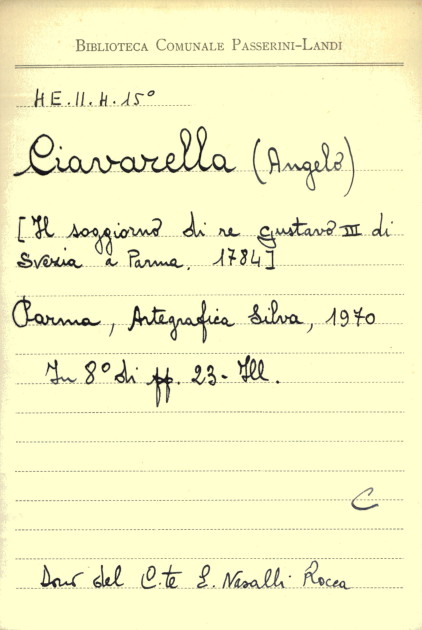 BIBLIOTECA COMUNALE PASSERINI-LANDI
HE.II.H.15°
Ciavarella (Angelo)
[Il soggiorno di re Gustavo III di
Svezia a Parma. 1784]
Parma, Artegrafica Silva, 1970
In 8° di pp. 23 - Ill.
C
Dono del C.te E. Nasalli Rocca